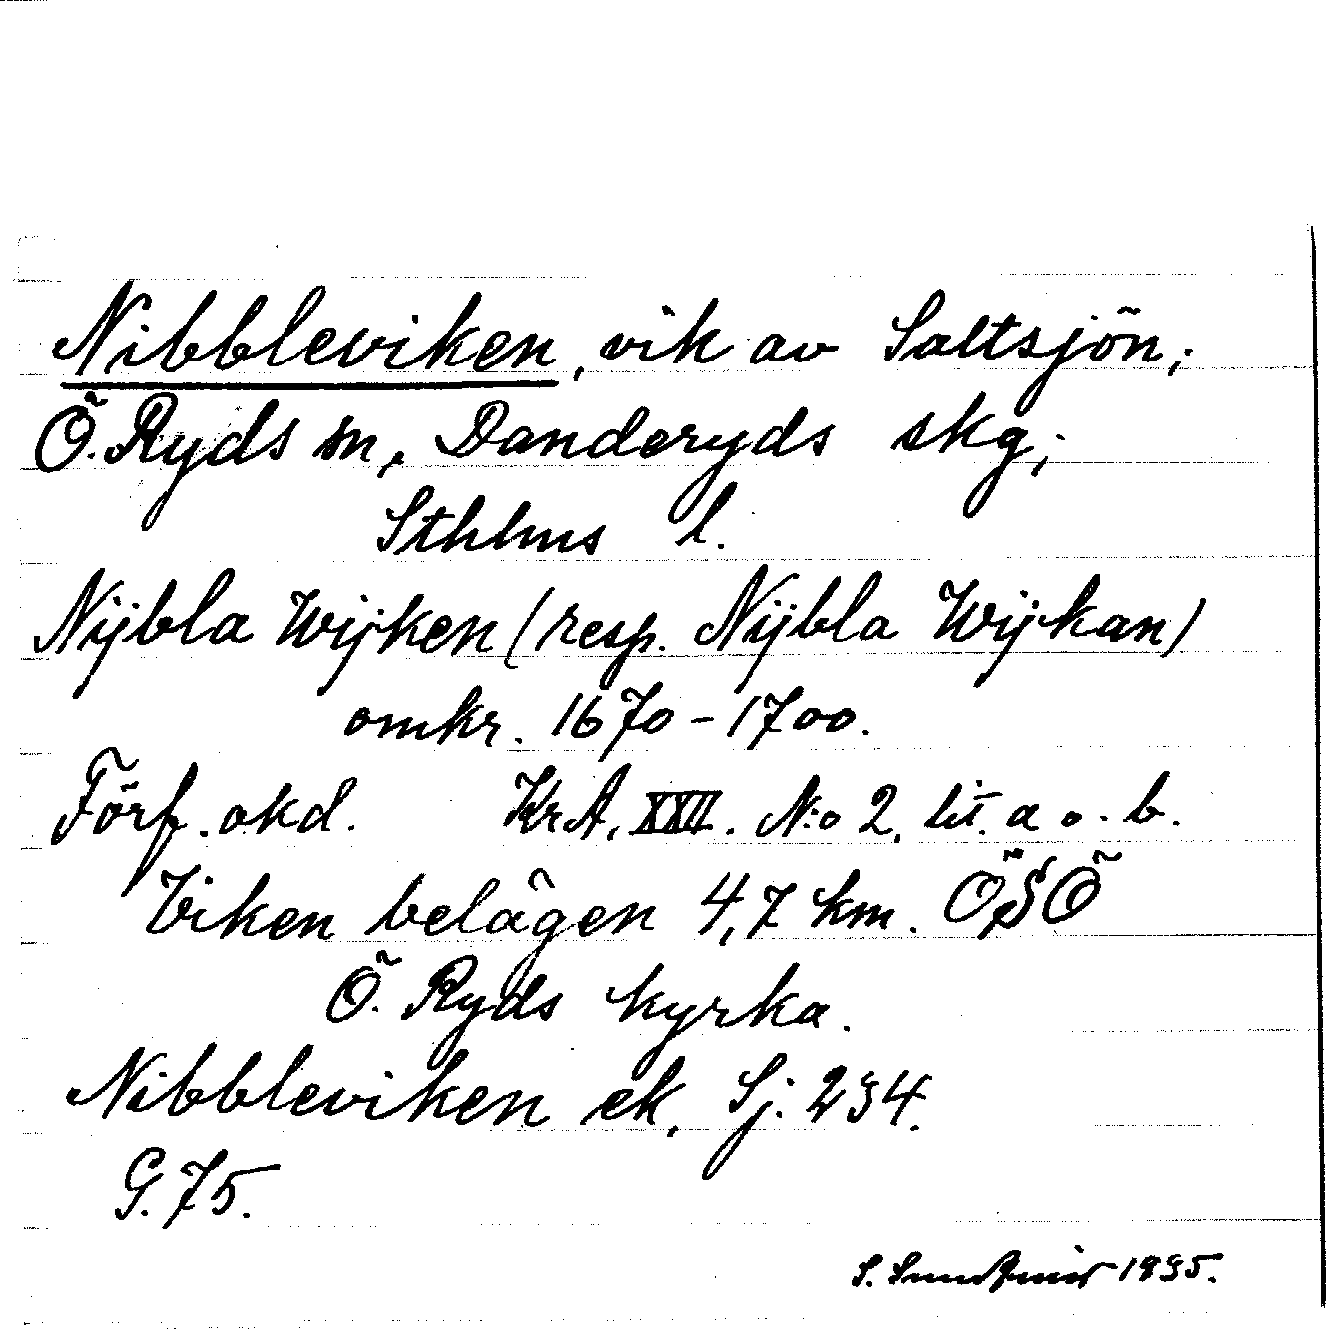 Nibbleviken, vik av Saltsjön;
Ö. Ryds sn, Danderyds skg;
Sthlms l.
Nÿbla Wijken (resp. Nÿbla Wijkan)
omkr. 1670-1700.
Förf. okd. KrA, XXII. N:o 2. lit. a o. b.
Viken belägen 4,7 km. ÖSÖ
Ö. Ryds kyrka.
Nibbleviken ek. Sj. 234.
G. 75.
S. 1935.